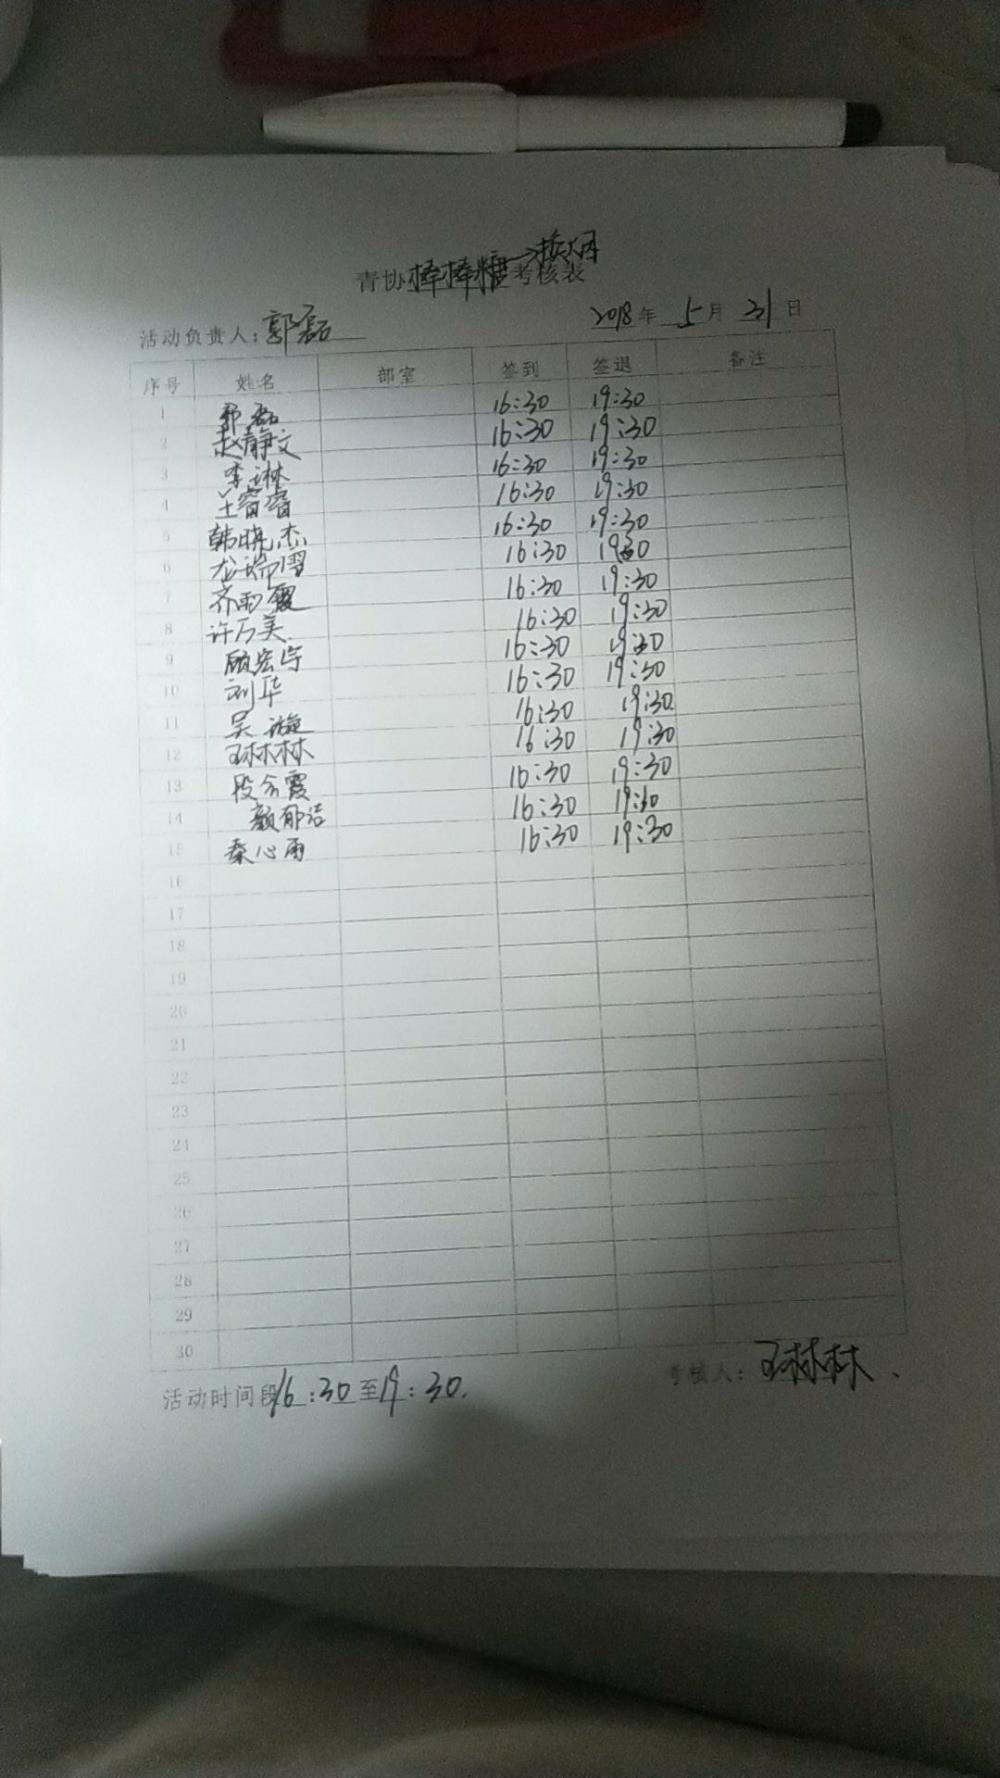 青协棒棒糖考核表
活动负责人：郭磊 2018年 5月 31日
序号 姓名 部室 签到 签退 备注
1 郭磊 16:30 19:30
2 赵静文 16:30 19:30
3 李琳 16:30 19:30
4 王睿睿 16:30 19:30
5 韩晓杰 16:30 19:30
6 龙瑞雪 16:30 19:30
7 齐雨霞 16:30 19:30
8 许万美 16:30 19:30
9 顾宏宇 16:30 19:30
10 刘华 16:30 19:30
11 吴 16:30 19:30
12 王林林 16:30 19:30
13 段会霞 16:30 19:30
14 颜郁洁 16:30 19:30
15 秦心雨 16:30 19:30
16
17
18
19
20
21
22
23
24
25
26
27
28
29
30
活动时间段16:30至19:30. 考核人：王林林.